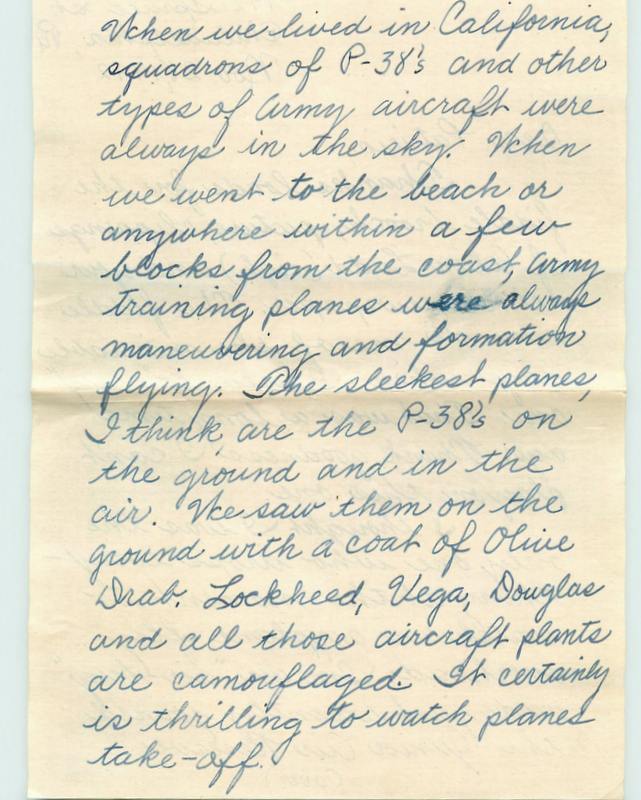 When we lived in California,
squadrons of P-38's and other
types of Army aircraft were
always in the sky. When
we went to the beach or
anywhere within a few
blocks from the coast, Army
training planes were always
maneuvering and formation
flying. The sleekest planes,
I think, are the P-38's on
the ground and in the
air. We saw them on the
ground with a coat of Olive
Drab. Lockheed, Vega, Douglas
and all those aircraft plants
are camouflaged. It certainly
is thrilling to watch planes
take-off.